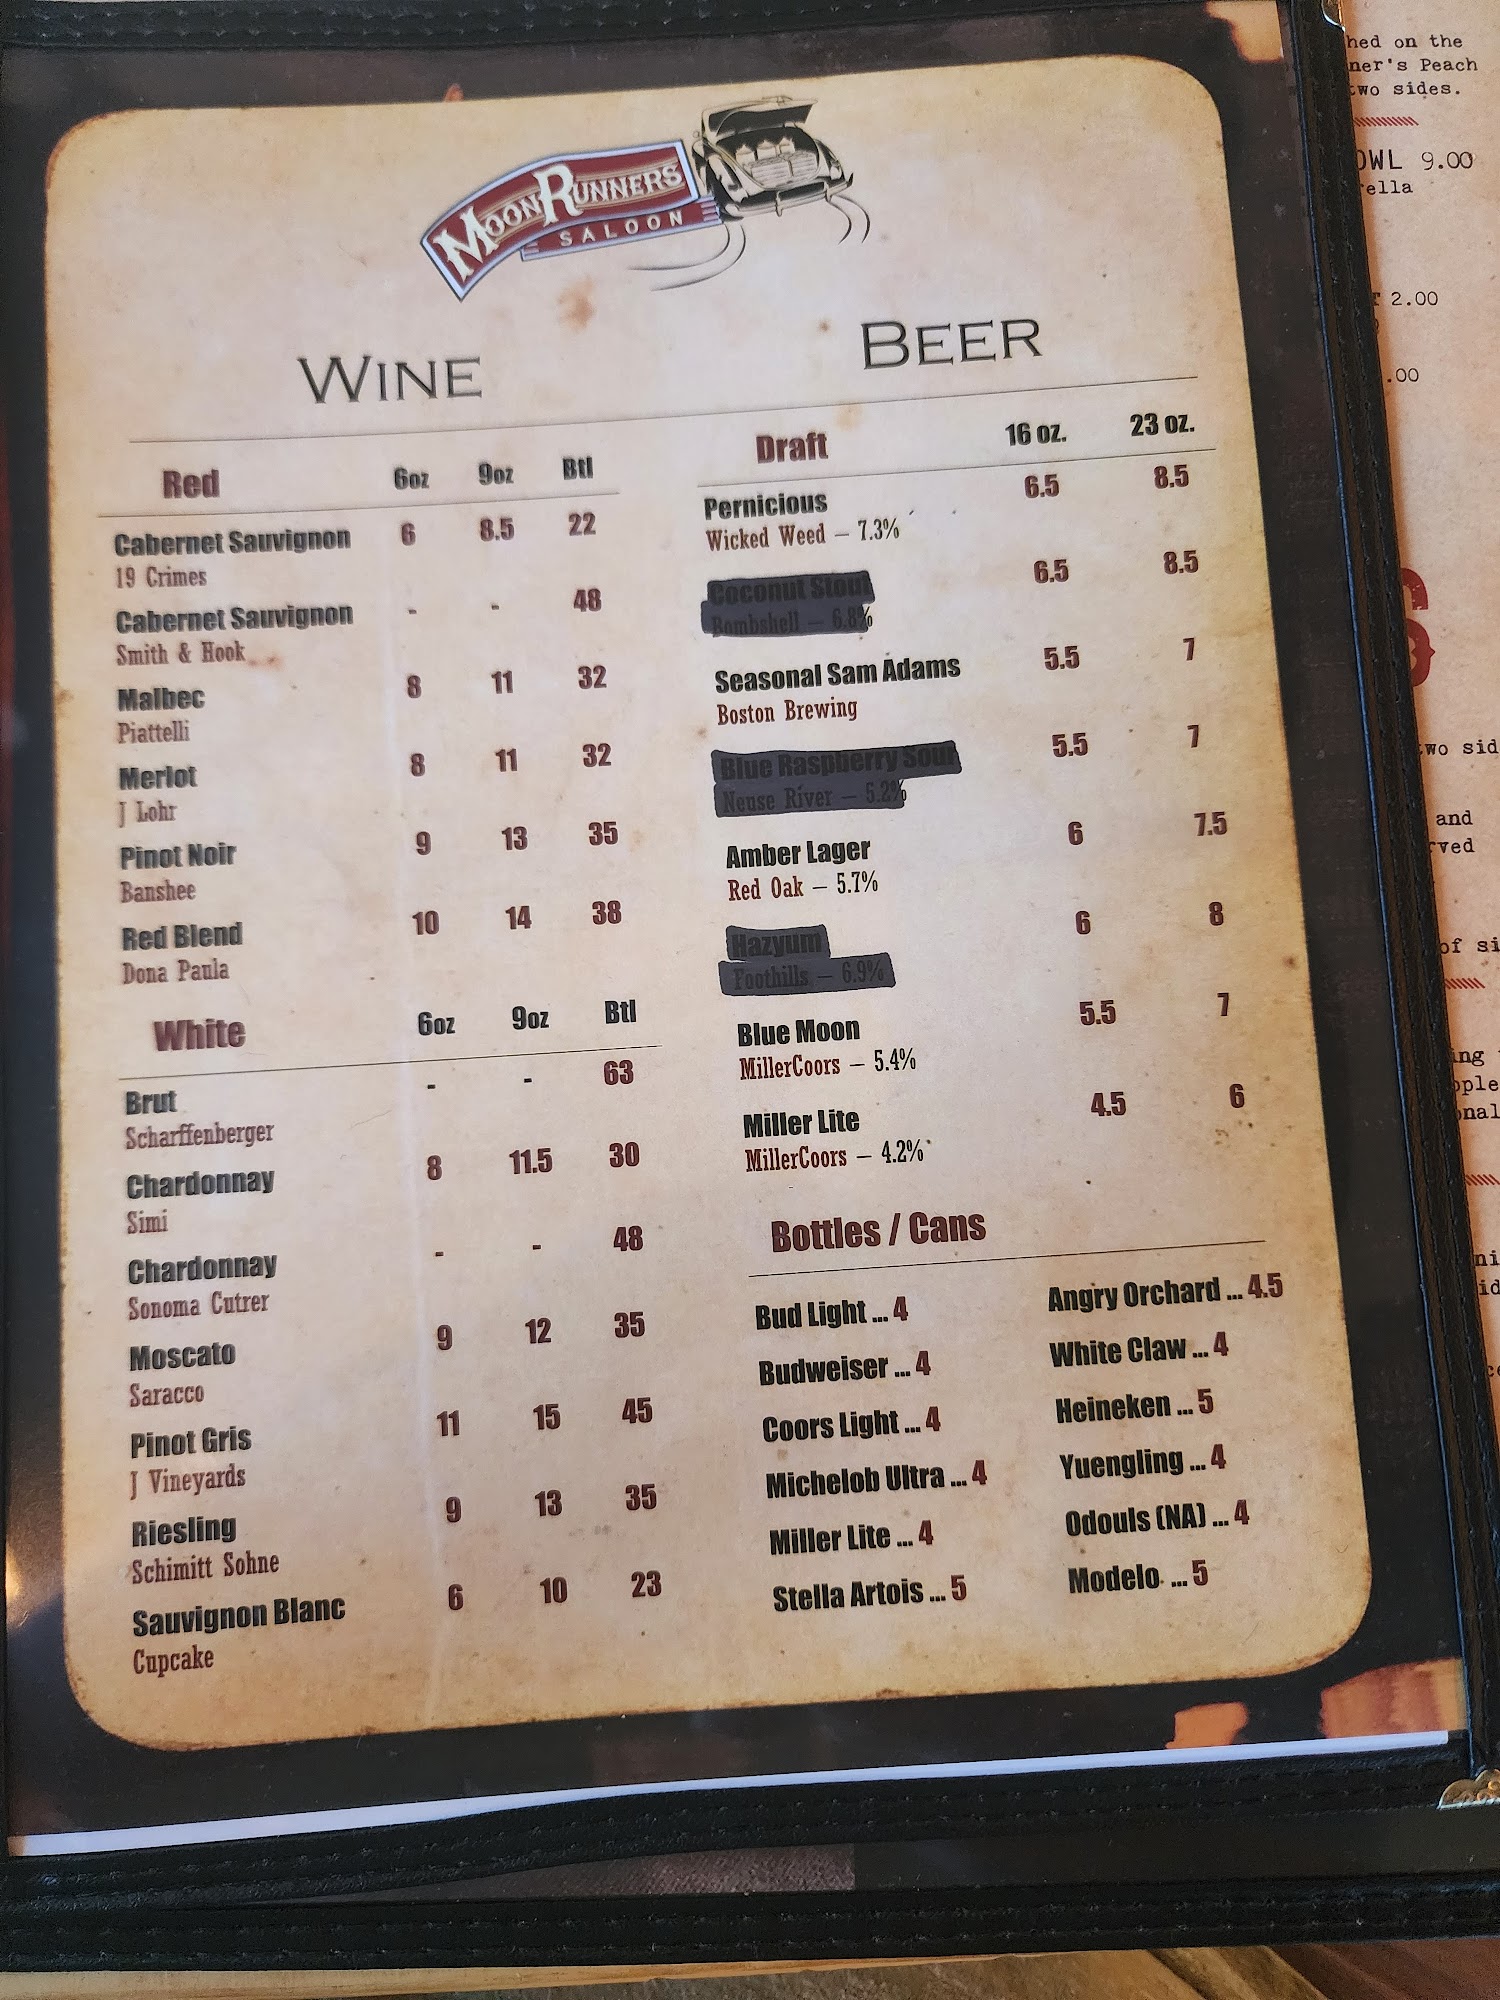 MOONRUNNERS
SALOON
WINE
Red 6oz 9oz Btl
Cabernet Sauvignon 6 8.5 22
19 Crimes
Cabernet Sauvignon - - 48
Smith & Hook
Malbec 8 11 32
Piattelli
Merlot 8 11 32
J Lohr
Pinot Noir 9 13 35
Banshee
Red Blend 10 14 38
Dona Paula
White 6oz 9oz Btl
Brut - - 63
Scharffenberger
Chardonnay 8 11.5 30
Simi
Chardonnay - - 48
Sonoma Cutrer
Moscato 9 12 35
Saracco
Pinot Gris 11 15 45
J Vineyards
Riesling 9 13 35
Schimitt Sohne
Sauvignon Blanc 6 10 23
Cupcake
BEER
Draft 16 oz. 23 oz.
Pernicious 6.5 8.5
Wicked Weed – 7.3%
Coconut Stout 6.5 8.5
Bombshell – 6.8%
Seasonal Sam Adams 5.5 7
Boston Brewing
Blue Raspberry Sour 5.5 7
Neuse River – 5.2%
Amber Lager 6 7.5
Red Oak – 5.7%
Hazyum 6 8
Foothills – 6.9%
Blue Moon 5.5 7
MillerCoors – 5.4%
Miller Lite 4.5 6
MillerCoors – 4.2%
Bottles / Cans
Bud Light ... 4
Budweiser ... 4
Coors Light ... 4
Michelob Ultra ... 4
Miller Lite ... 4
Stella Artois ... 5
Angry Orchard ... 4.5
White Claw ... 4
Heineken ... 5
Yuengling ... 4
Odouls (NA) ... 4
Modelo ... 5
on the
Peach
two sides.
9.00
2.00
.00
and
of